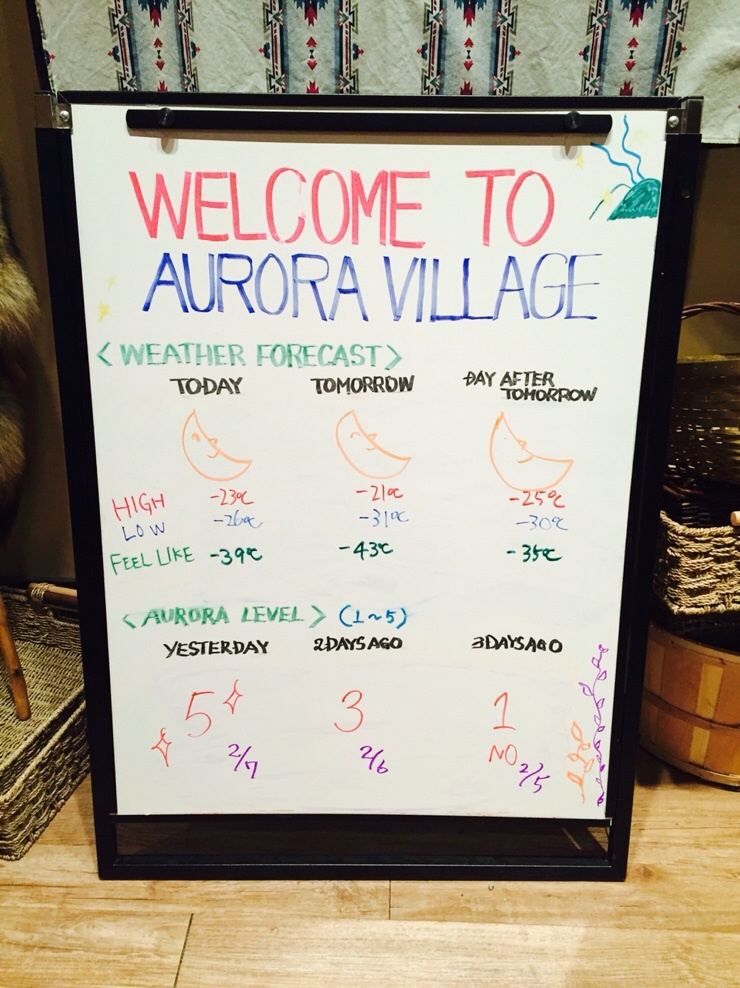 WELCOME TO
AURORA VILLAGE
<WEATHER FORECAST>
TODAY TOMORROW DAY AFTER TOMORROW
HIGH -23℃ -21℃ -25℃
LOW -26℃ -31℃ -30℃
FEEL LIKE -39℃ -43℃ -35℃
<AURORA LEVEL> (1~5)
YESTERDAY 2DAYS AGO 3DAYS AGO
5 3 1
NO
2/7 2/6 2/5